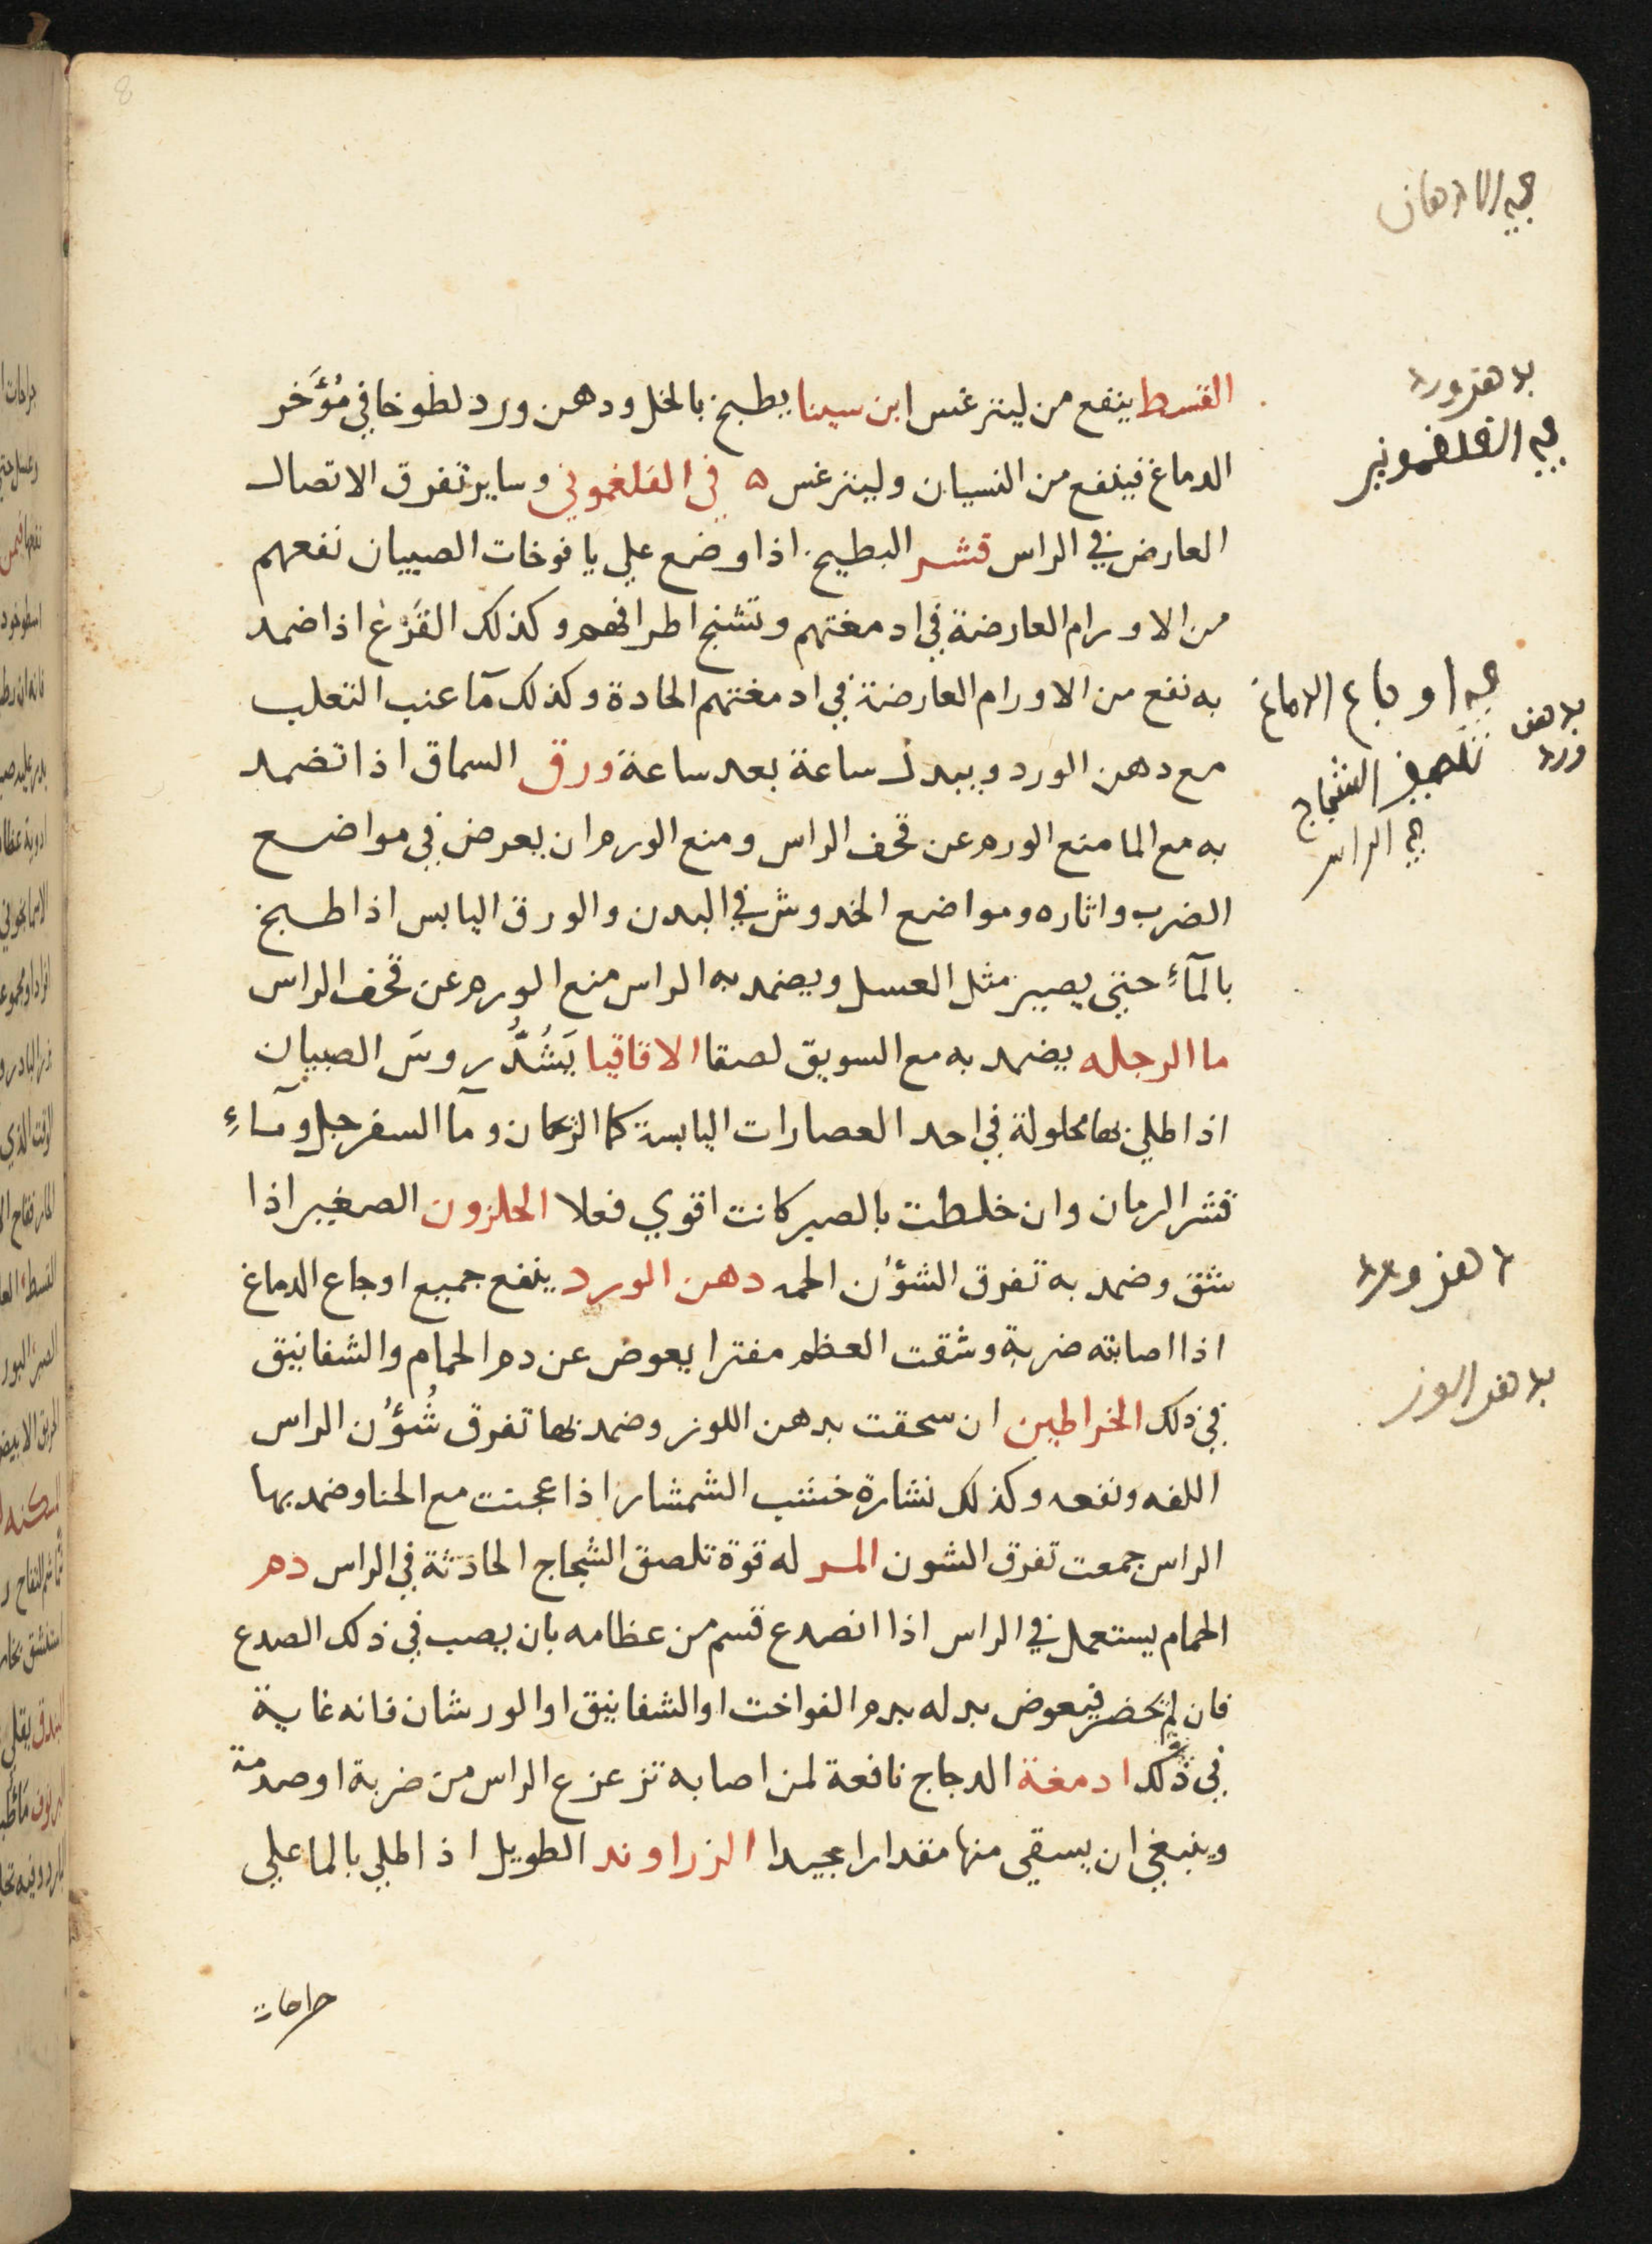 8
في الادهان
القسط ينفع من ليثرغس ابن سينا يطبخ بالخل ودهن ورد لطوخا في مُؤَخر
الدماغ فينفع من النسيان وليثرغس ه في الفلغموني وساير تفرق الاتصال
العارض في الراس قشر البطيخ اذا وضع علي يافوخات الصبيان نفعهم
من الاورام العارضة في ادمغتهم وتشنج اطرافهم وكذلك القَرْع اذا ضمد
به نفع من الاورام العارضة في ادمغتهم الحادة وكذلك مآ عنب الثعلب
مع دهن الورد ويبدل ساعة بعد ساعة ورق السماق اذا تضمد
به مع الما منع الورم عن قحف الراس ومنع الورم ان يعرض في مواضع
الضرب واثاره ومواضع الخدوش في البدن والورق اليابس اذا طبخ
بالمآءِ حتي يصير مثل العسل ويضمد به الراس منع الورم عن قحف الراس
ما الرجله يضمد به مع السويق لصقا الاقاقيا يَشُدُّ روسَ الصبيان
اذا طلي بها محلولة في احد العصارات اليابسة كما الرمان ومآ السفرجل ومآءِ
قشر الرمان وان خلطت بالصبر كانت اقوي فعلا الحلزون الصغير اذا
شق وضمد به تفرق الشؤن الحمه دهن الورد ينفع جميع اوجاع الدماغ
اذا اصابته ضربة وشقت العظم مفترا يعوض عن دم الحمام والشفانيق
في ذلك الخراطين ان سحقت بدهن اللوز وضمد بها تفرق شُؤُن الراس
اللفه ونفعه وكذلك نشارة خشب الشمشار اذا عجنت مع الحنا وضمد بها
الراس جمعت تفرق الشون المر له قوة تلصق الشجاج الحادثة في الراس دم
الحمام يستعمل في الراس اذا انصدع قسم من عظامه بان يصب في ذلك الصدع
فان لم يحضر فيعوض بدله بدم الفواخت او الشفانيق او الورشان فانه غاية
في ذلك ادمغة الدجاج نافعة لمن اصابه تزعزع الراس من ضربة او صدمة
وينبغي ان يسقي منها مقدارا جيدا الزراوند الطويل اذا طلي بالما علي
جراحات
بدهن ورد
في الفلغموني
في اوجاع الدماغ
بدهن ورد
تلصيق الشجاج
في الراس
دهن ورد
بدهن لوز